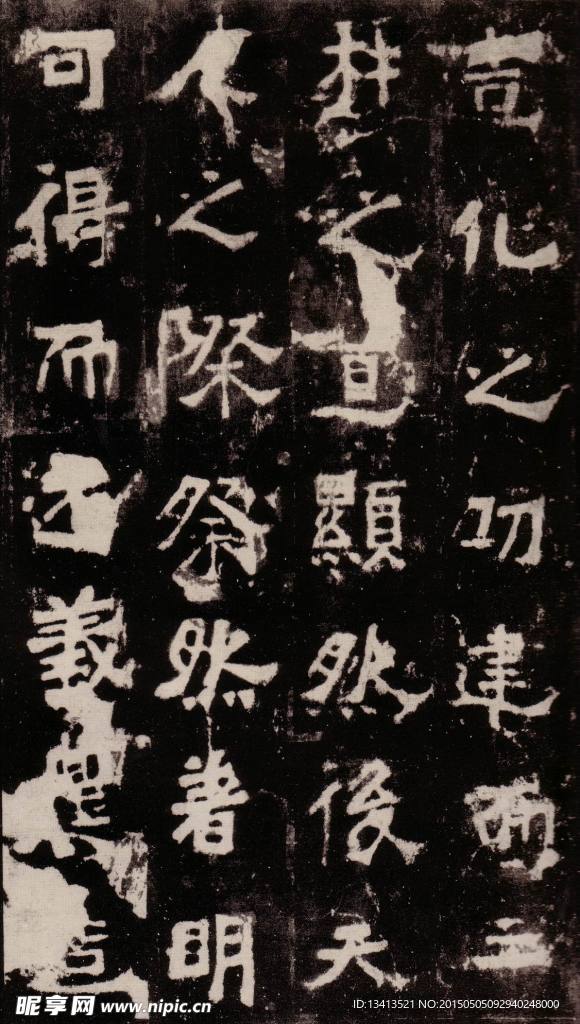 化之功建而二
之顯然後天
人之際粲然著明
可得而義
昵享网 www.nipic.cn
ID:13413521 NO:20150505092940248000